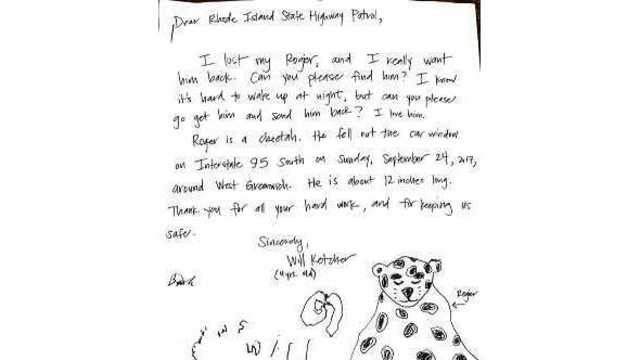 Dear Rhode Island State Highway Patrol,
I lost my Roger, and I really want
him back. Can you please find him? I know
it's hard to wake up at night, but can you please
go get him and send him back? I love him.
Roger is a cheetah. He fell out the car window
on Interstate 95 South on Sunday, September 24, 2017,
around West Greenwich. He is about 12 inches long.
Thank you for all your hard work, and for keeping us
safe.
Sincerely,
Will Ketcher
(4 yrs. old)
Roger